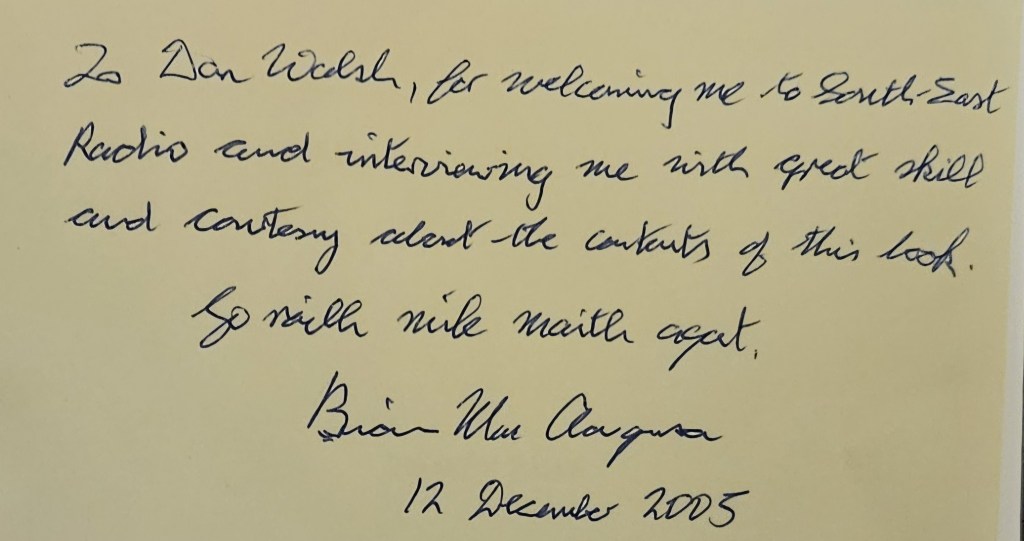 To Dan Walsh, for welcoming me to South-East
Radio and interviewing me with great skill
and courtesy about the contents of this book.
Go raibh míle maith agat.
Brian Mac Aongusa
12 December 2005